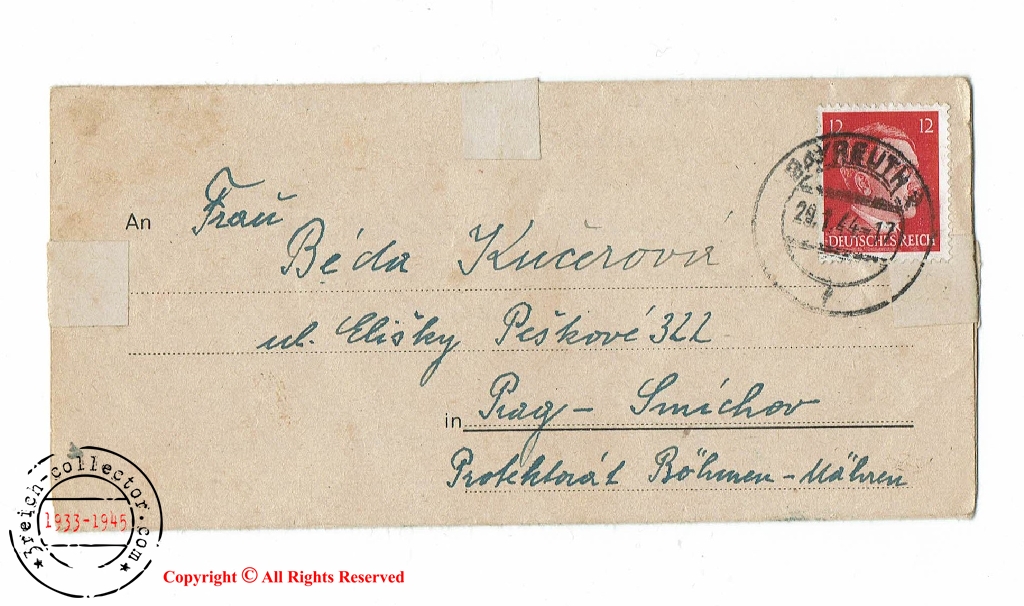 12 12
BAYREUTH 2
44-17
DEUTSCHES REICH
An Frau
Béda Kučerová
ul. Elišky Peškové 322
in Prag - Smíchov
Protektorát Böhmen - Mähren
3reich-collector.com
1933-1945
Copyright © All Rights Reserved